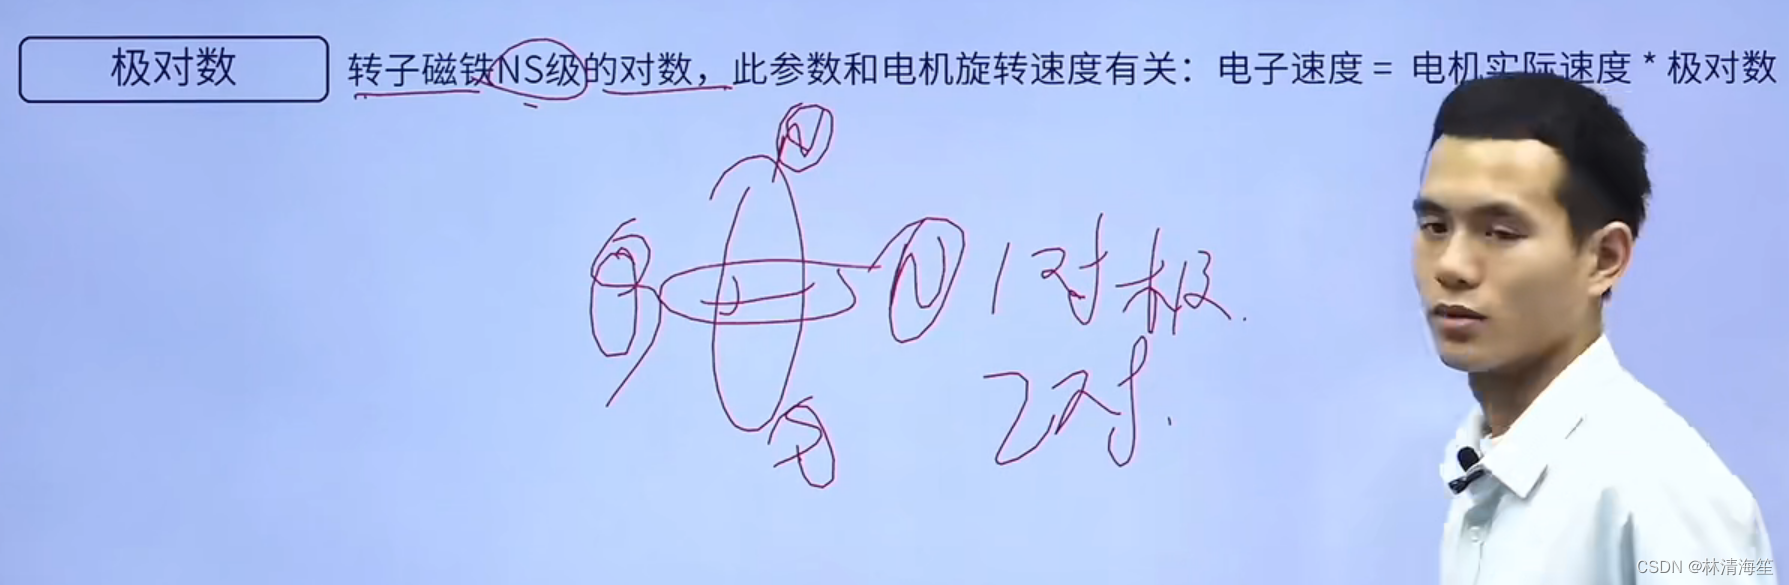 极对数 转子磁铁NS级的对数，此参数和电机旋转速度有关：电子速度 = 电机实际速度 * 极对数
N
S N 1对极.
2对.
S
CSDN @林清海笙